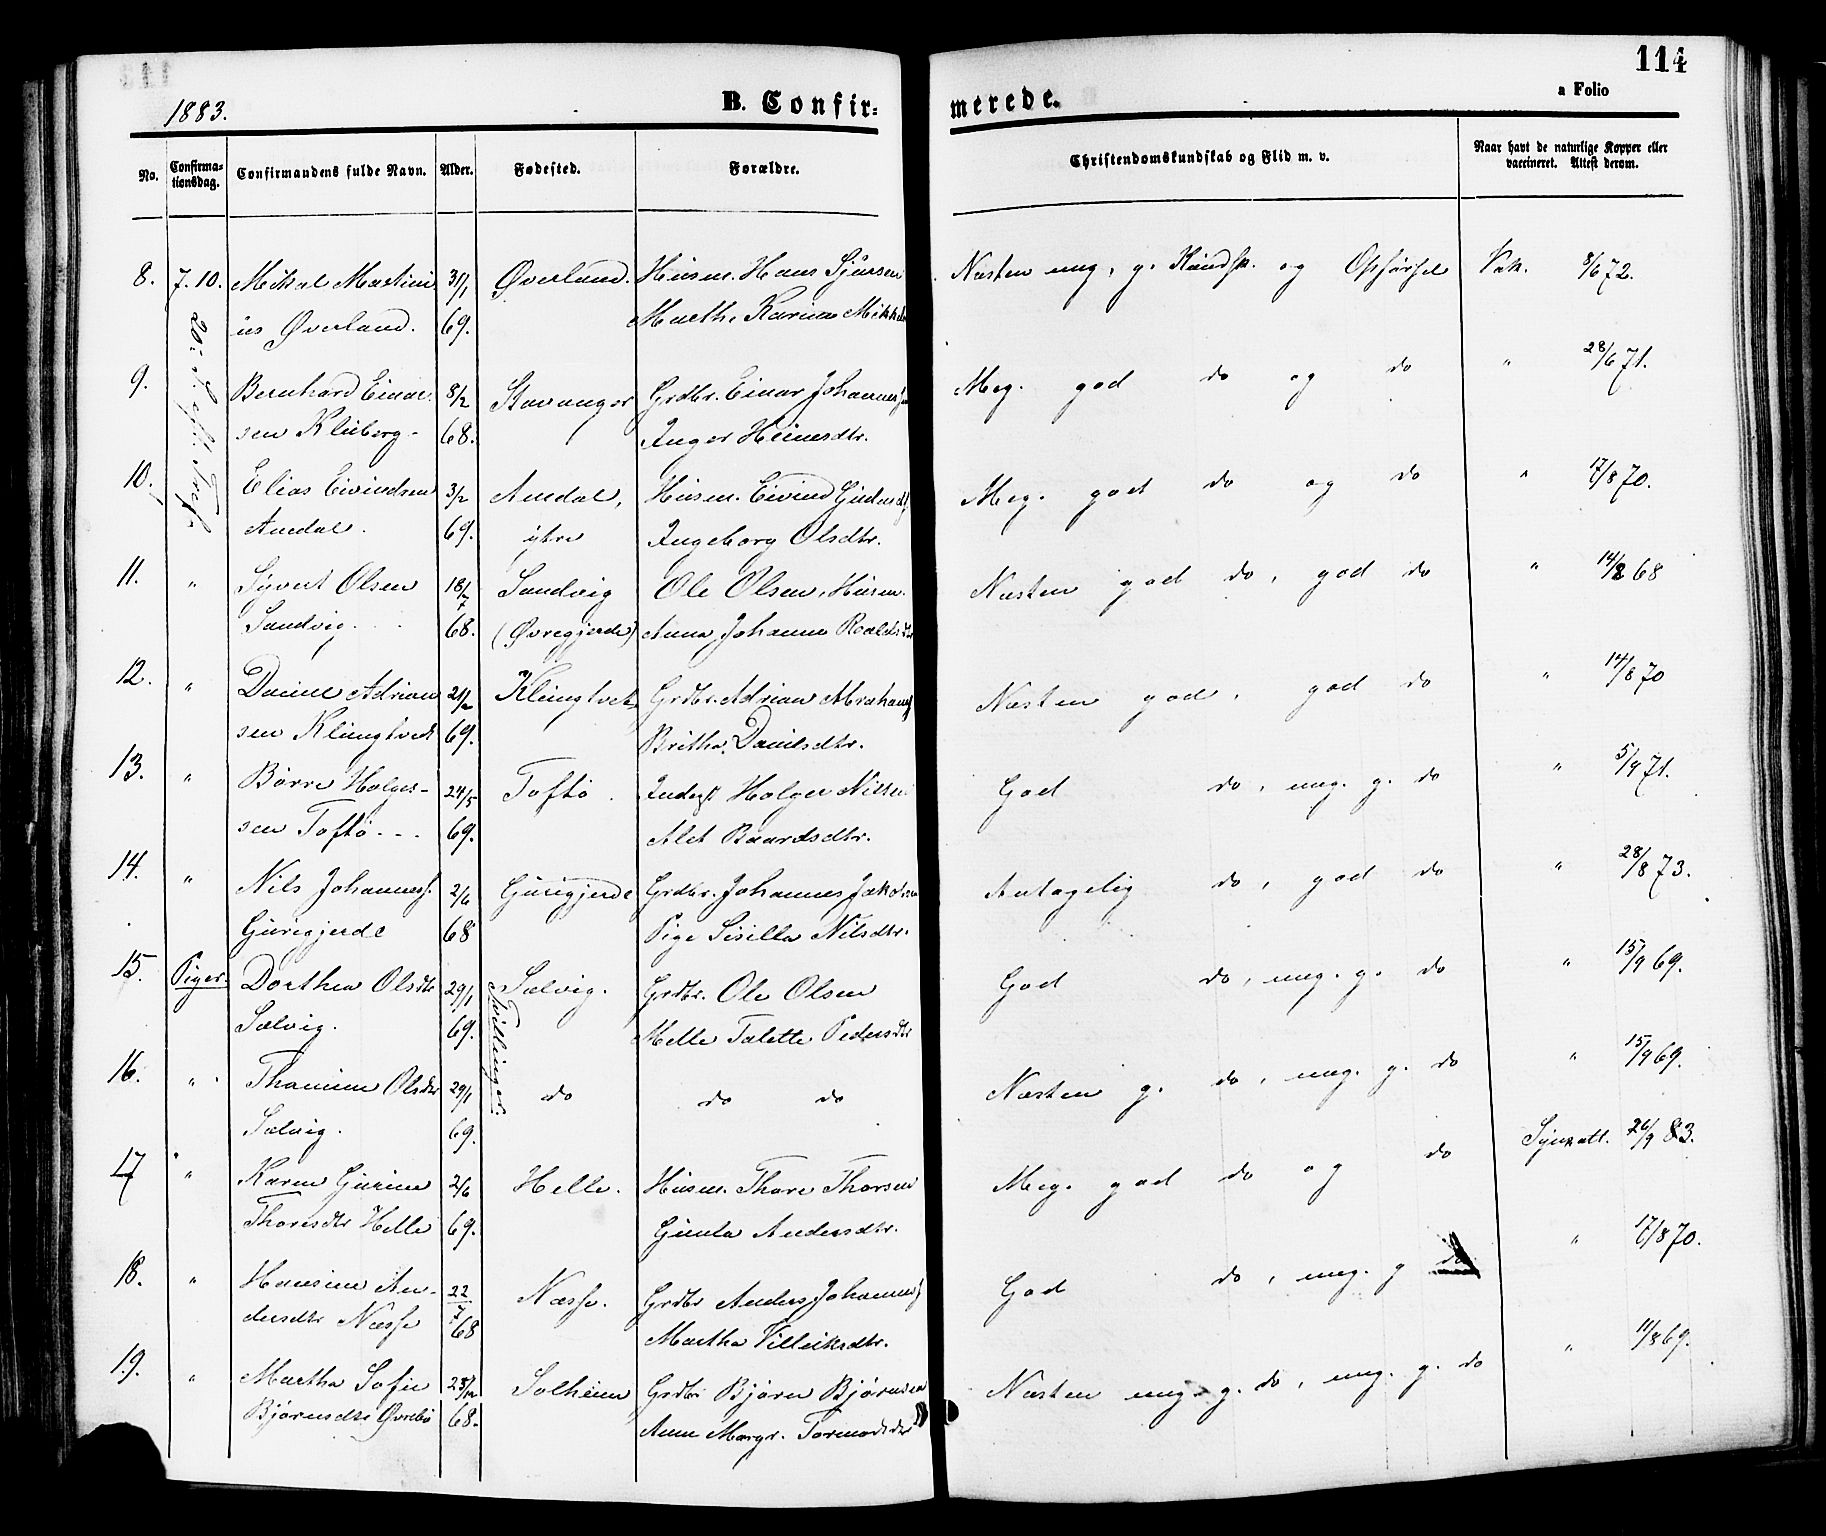 114
1883.
B. Confir-
merede.
a Folio
No.
Confirma-
tionsdag.
Confirmandens fulde Navn.
Alder.
Fødested.
Forældre.
Christendomskundskab og Flid m. v.
Naar havt de naturlige Kopper eller
vaccineret. Attest derom.
8. 7.10. Mikal Martin 31/1 Øverland. Husm. Hans Sjursen Næsten meg. g. Kundsk. og Opførsel Vak. 8/6 72.
ius Øverland. 69. Marthe Karine Mikkels
20. S. eft. Tref.
9. Bernhard Einar- 8/2 Stavanger Grdbr. Einar Johannes Meg. god do og do " 28/6 71.
sen Kleiberg 68. Inger Heinesdtr.
10. Elias Eivindsen 3/2 Amdal, Husm. Eivind Meg. god do og do " 17/8 70.
Amdal. 69. ytre Ingeborg Olsdtr.
11. " Syvert Olsen 18/7 Sandvig Ole Olsen, Husm. Næsten god do, god do " 14/8 68
Sandvig. 68. (Øvregjerde) Anna Johanne Roaldsdtr
12. " Daniel Adrian 21/2 Klungtvet Grdbr. Adrian Abrahams Næsten god, god do " 14/8 70
sen Klungtvedt 69. Britha Danielsdtr.
13. " Børre Holger- 24/5 Toftø. Inderst Holger Nilsen God do, meg. g. do " 5/9 71.
sen Toftø. 69. Alet Baardsdtr.
14. " Nils Johannes 2/6 Gurigjerde Grdbr. Johannes Jakobsen Antagelig do, god do " 28/8 73.
Gurigjerde 68 Pige Sisilla Nilsdtr.
15. Piger. Dorthea Olsdtr 29/1 Salvig. Grdbr. Ole Olsen God do, meg. g. do " 15/9 69.
Salvig. 69. Melle Talette Pedersdtr
Tvillinger.
16. " Thomine Olsdtr 29/1 do do do Næsten g. do, meg. g. do " 15/9 69.
Salvig. 69.
17 " Karen Gurine 2/6 Helle. Husm. Thore Thorsen Meg. god do og do Synsatt. 26/9 83.
Thoresdtr Helle 69. Gunla Andersdtr.
18. " Hansine An- 22/7 Næsse. Grdbr Anders Johannes God do, meg. g do " 17/8 70.
dersdtr Næsse 68 Martha Villiksdtr.
19. " Martha Sofie 23/12 Solheim Grdbr Bjørn Bjørnsen Næsten meg. g. do, meg. g. do " 11/8 69.
Bjørnsdtr Øvrebø 68. Anne Margr. Tormodsdtr